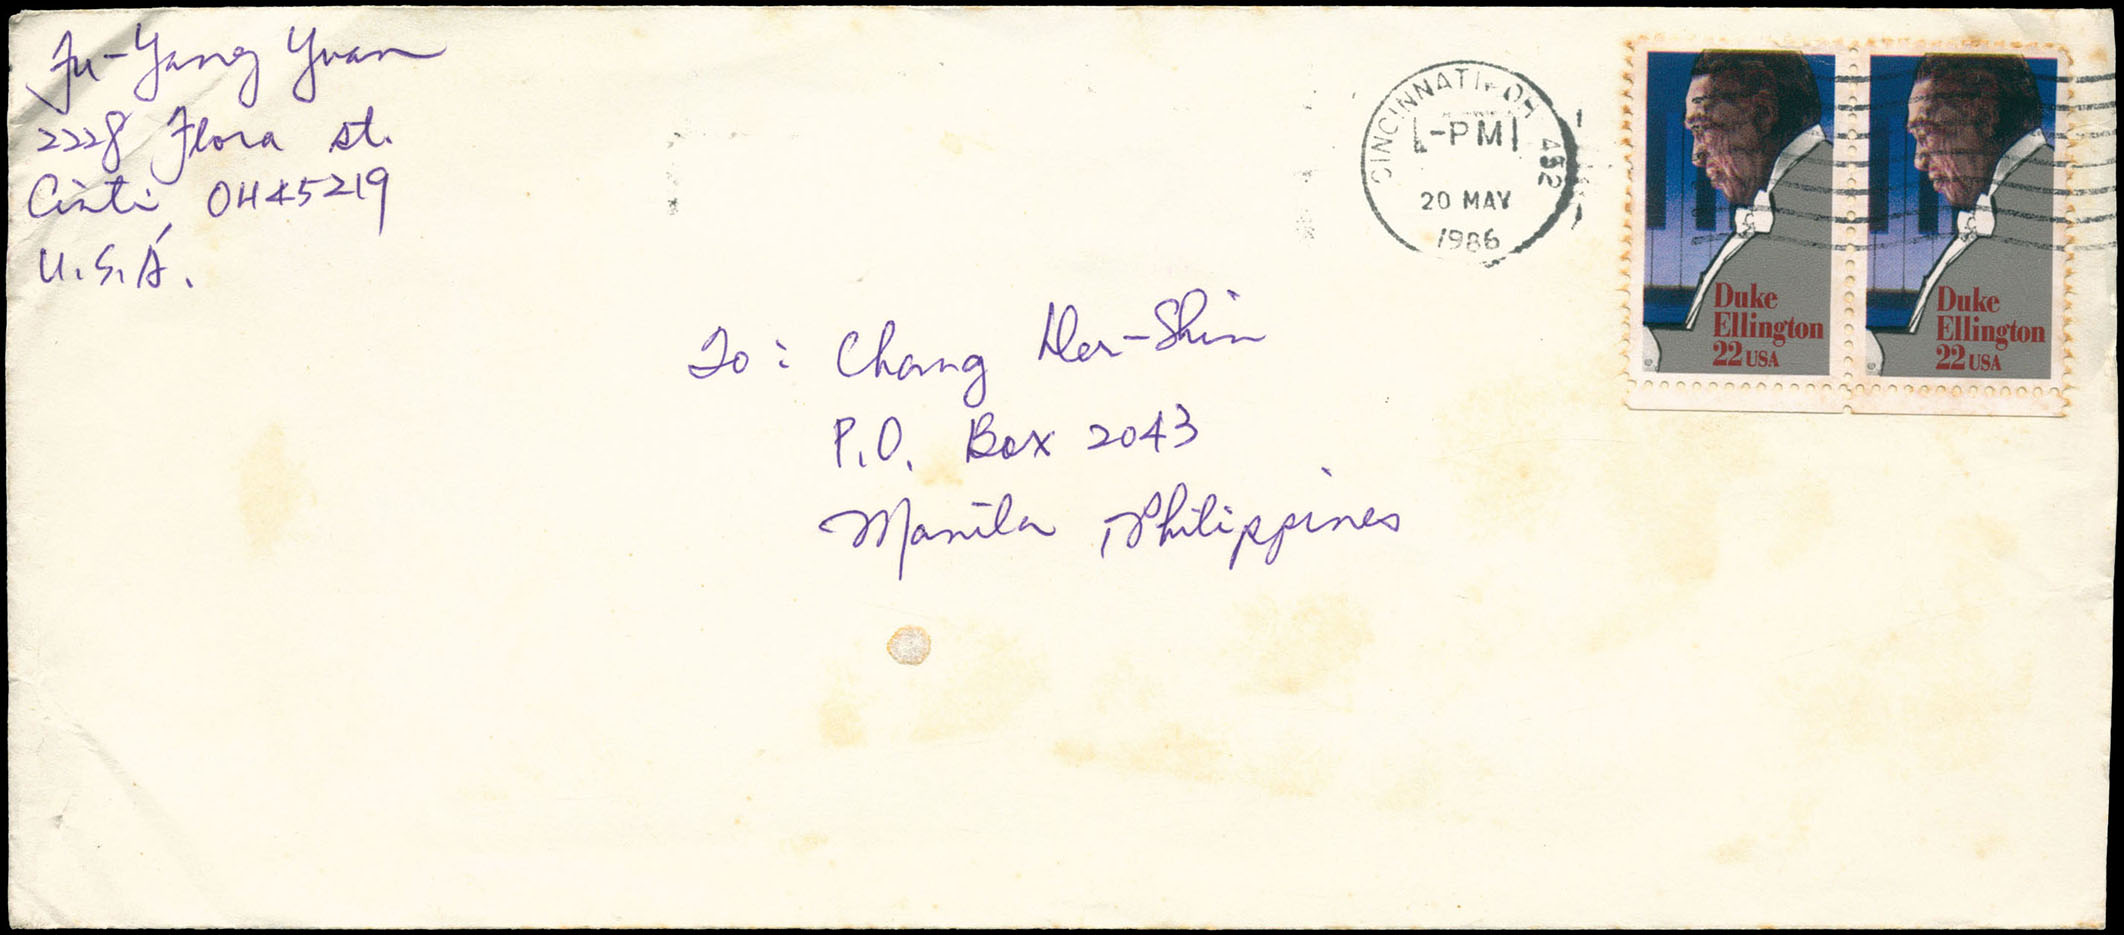 Fu-Yang Yuan
2228 Flora st.
Cinti, OH45219
U.S.A.
CINCINNATI, OH 452
-PM
20 MAY
1986
Duke
Ellington
22 USA
Duke
Ellington
22 USA
To: Chang Der-Shin
P.O. Box 2043
Manila, Philippines